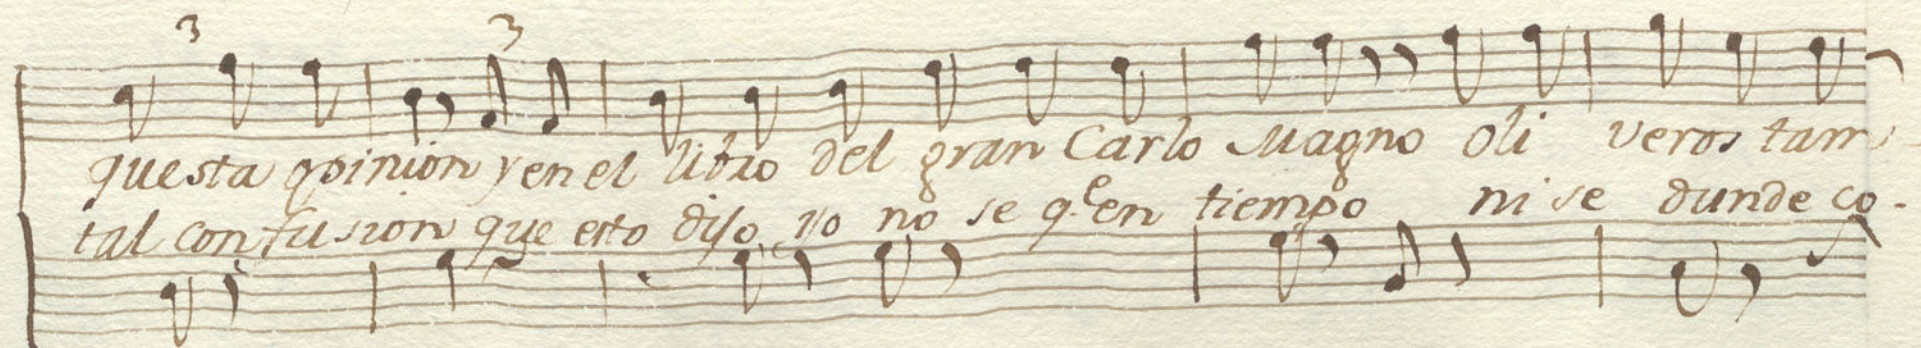 3 3
questa opinion y en el libro del gran Carlo Magno Oli veros tam
tal confusion que esto dijo yo no se q.e en tiempo ni se dunde co-